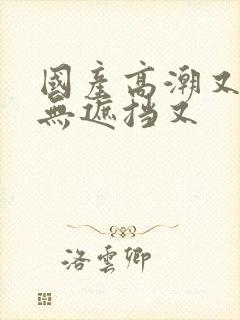 國產高潮又
無遮挡又
洛雲卿